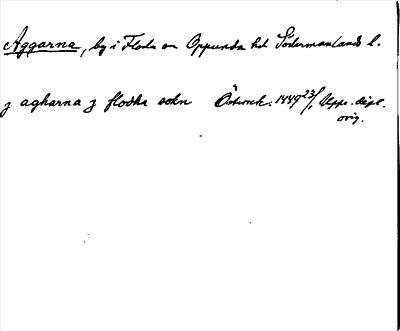 Aggarna, by i Floda sn Oppunda hd Södermanlands l.
j agharna j flodha sokn Österåk. 1449 23/1 Upps. dipl.
orig.